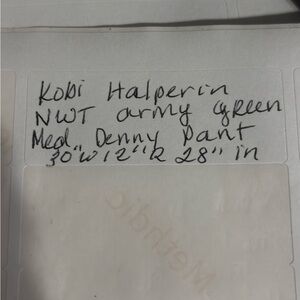 Kobi Halperin
NWT army green
Med. Denny Pant
30"W 12"R 28" in